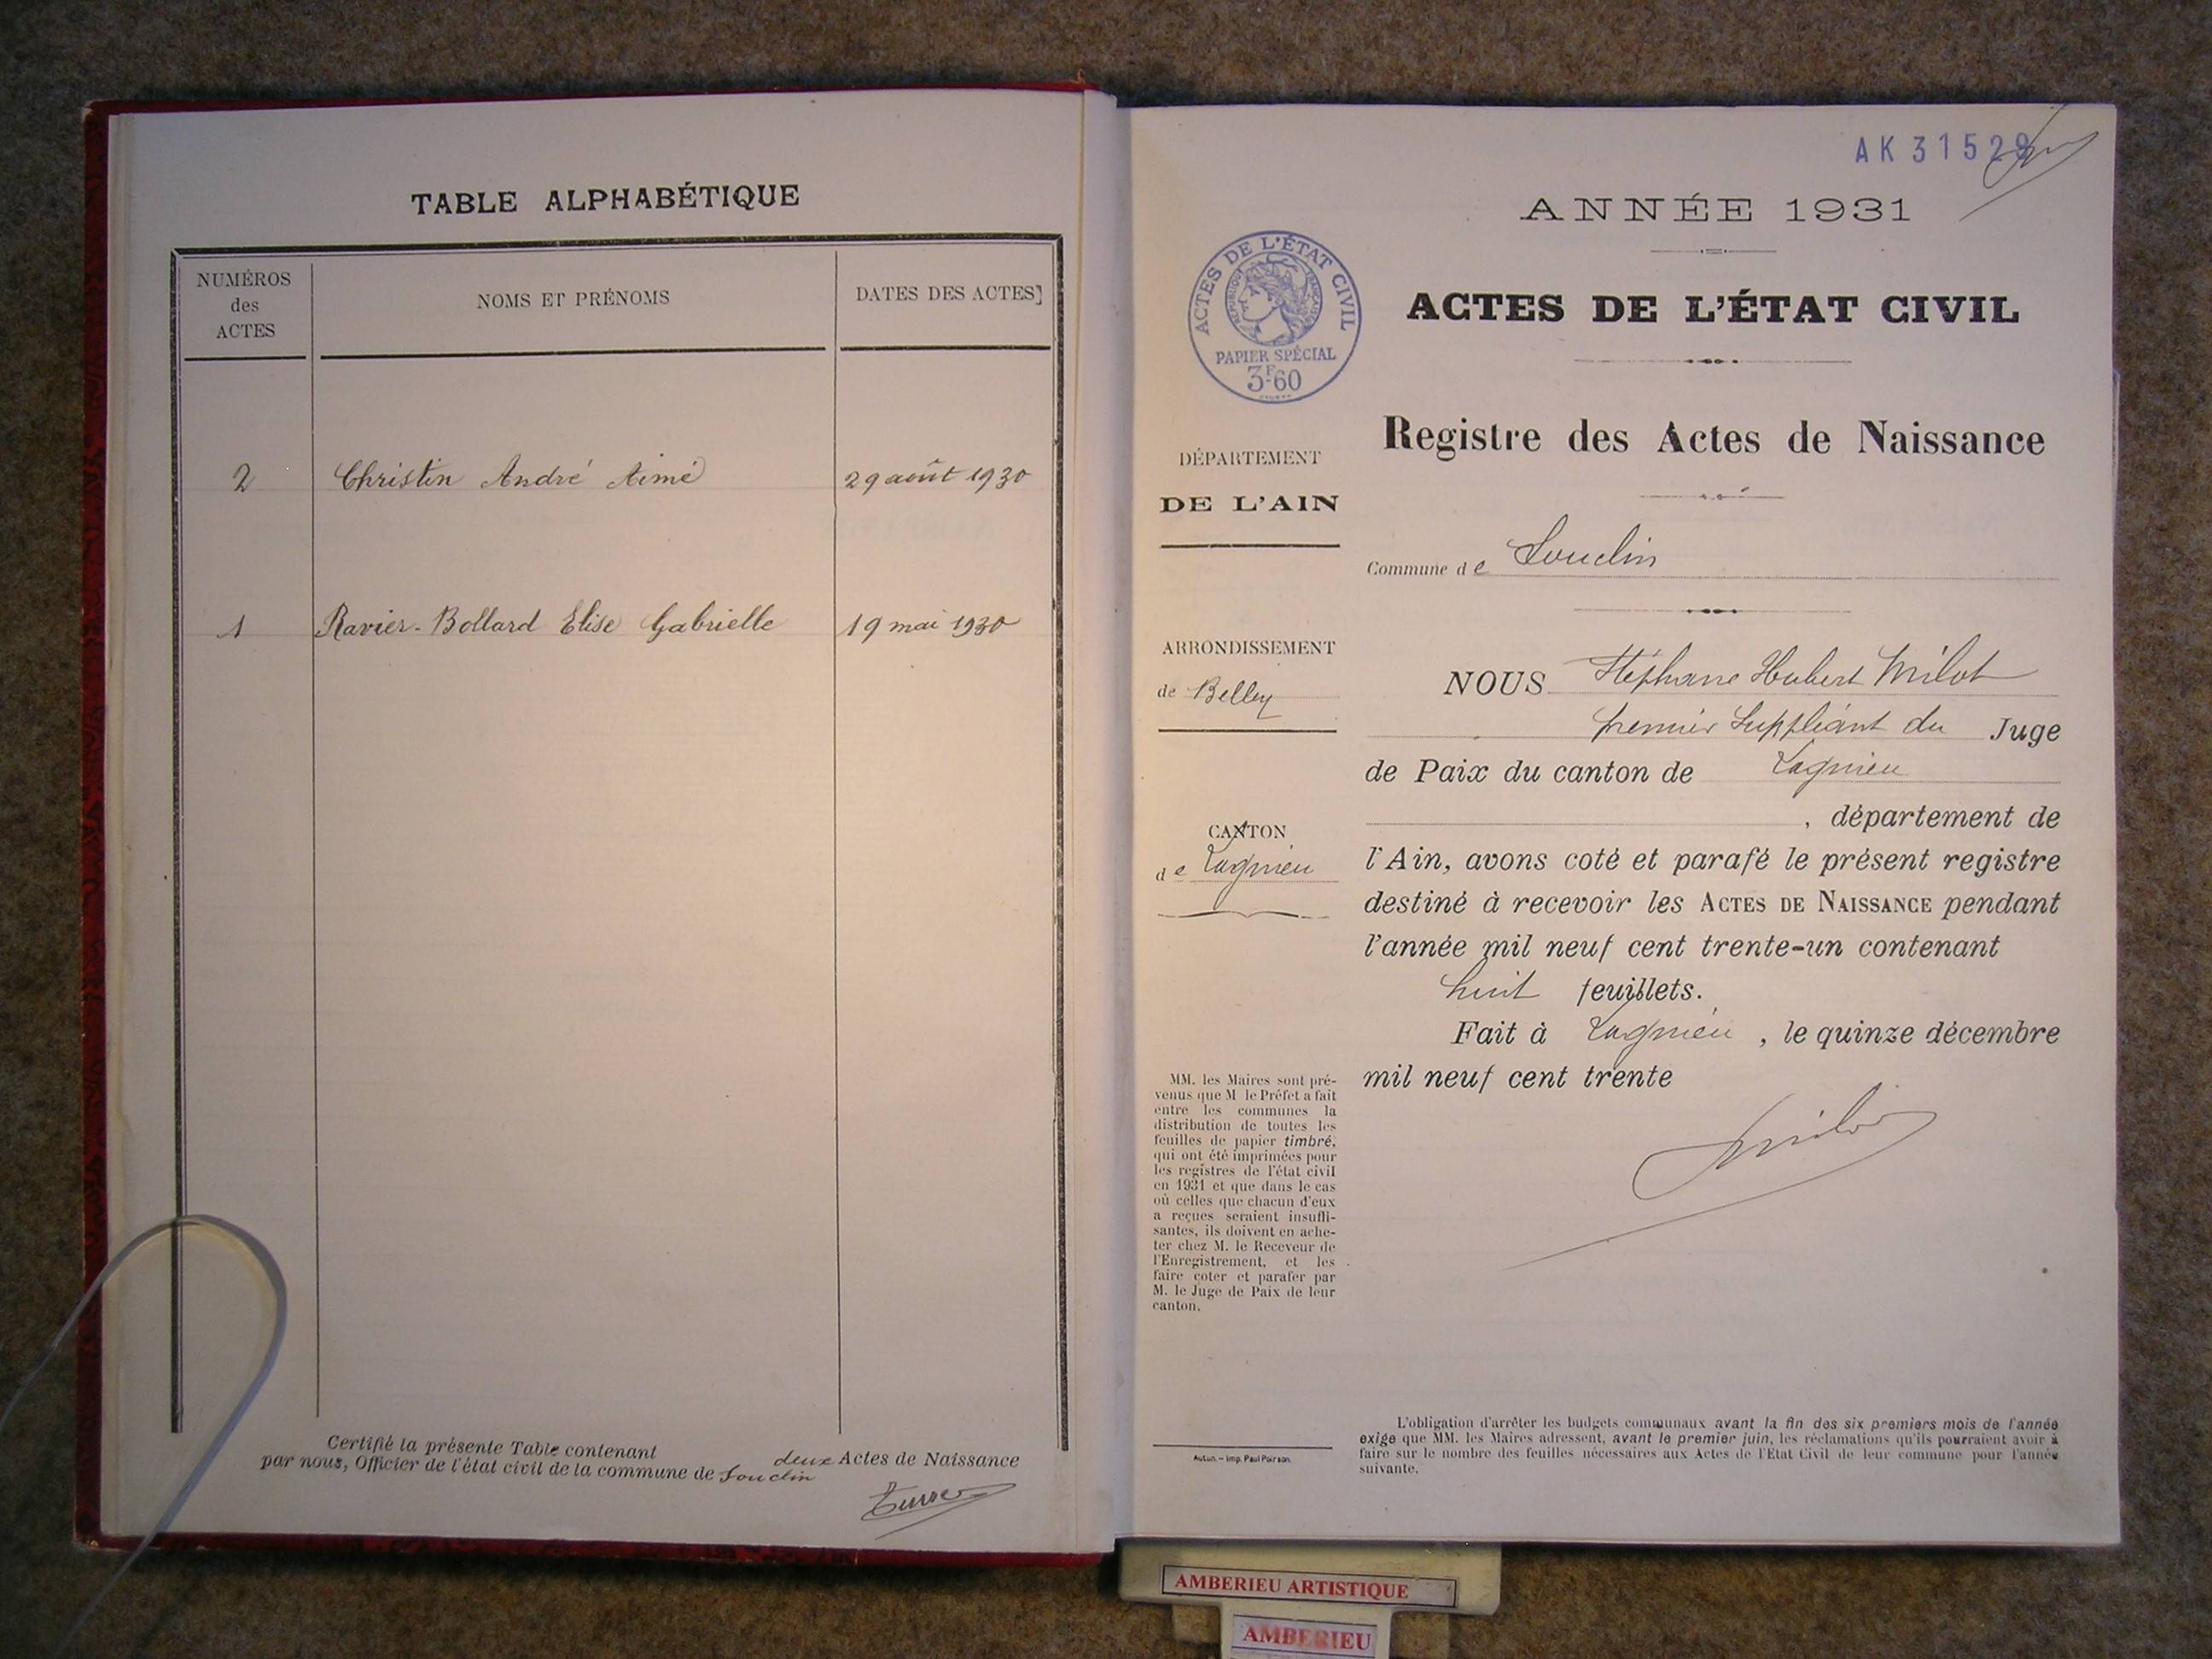 TABLE ALPHABÉTIQUE
NUMÉROS
des
ACTES
NOMS ET PRÉNOMS
DATES DES ACTES
2 Christin André Aimé 29 août 1930
1 Ravier-Bollard Elise Gabrielle 19 mai 1930
Certifié la présente Table contenant deux Actes de Naissance
par nous, Officier de l'état civil de la commune de Souclin
AK 31529
ANNÉE 1931
ACTES DE L'ÉTAT CIVIL
RÉPUBLIQUE FRANÇAISE
PAPIER SPÉCIAL
3F60
ACTES DE L'ÉTAT CIVIL
Registre des Actes de Naissance
DÉPARTEMENT
DE L'AIN
Commune de Souclin
ARRONDISSEMENT
de Belley
CANTON
de Lagnieu
NOUS Stéphane Hubert Milot
premier Suppléant du Juge
de Paix du canton de Lagnieu
, département de
l'Ain, avons coté et parafé le présent registre
destiné à recevoir les ACTES DE NAISSANCE pendant
l'année mil neuf cent trente-un contenant
huit feuillets.
Fait à Lagnieu, le quinze décembre
mil neuf cent trente
Milot
MM. les Maires sont pré-
venus que M le Préfet a fait
entre les communes la
distribution de toutes les
feuilles de papier timbré,
qui ont été imprimées pour
les registres de l'état civil
en 1931 et que dans le cas
où celles que chacun d'eux
a reçues seraient insuffi-
santes, ils doivent en ache-
ter chez M. le Receveur de
l'Enregistrement, et les
faire coter et parafer par
M. le Juge de Paix de leur
canton.
Autun. – Imp. Paul Poirson.
L'obligation d'arrêter les budgets communaux avant la fin des six premiers mois de l'année
exige que MM. les Maires adressent, avant le premier juin, les réclamations qu'ils pourraient avoir à
faire sur le nombre des feuilles nécessaires aux Actes de l'Etat Civil de leur commune pour l'année
suivante.
AMBERIEU ARTISTIQUE
AMBERIEU